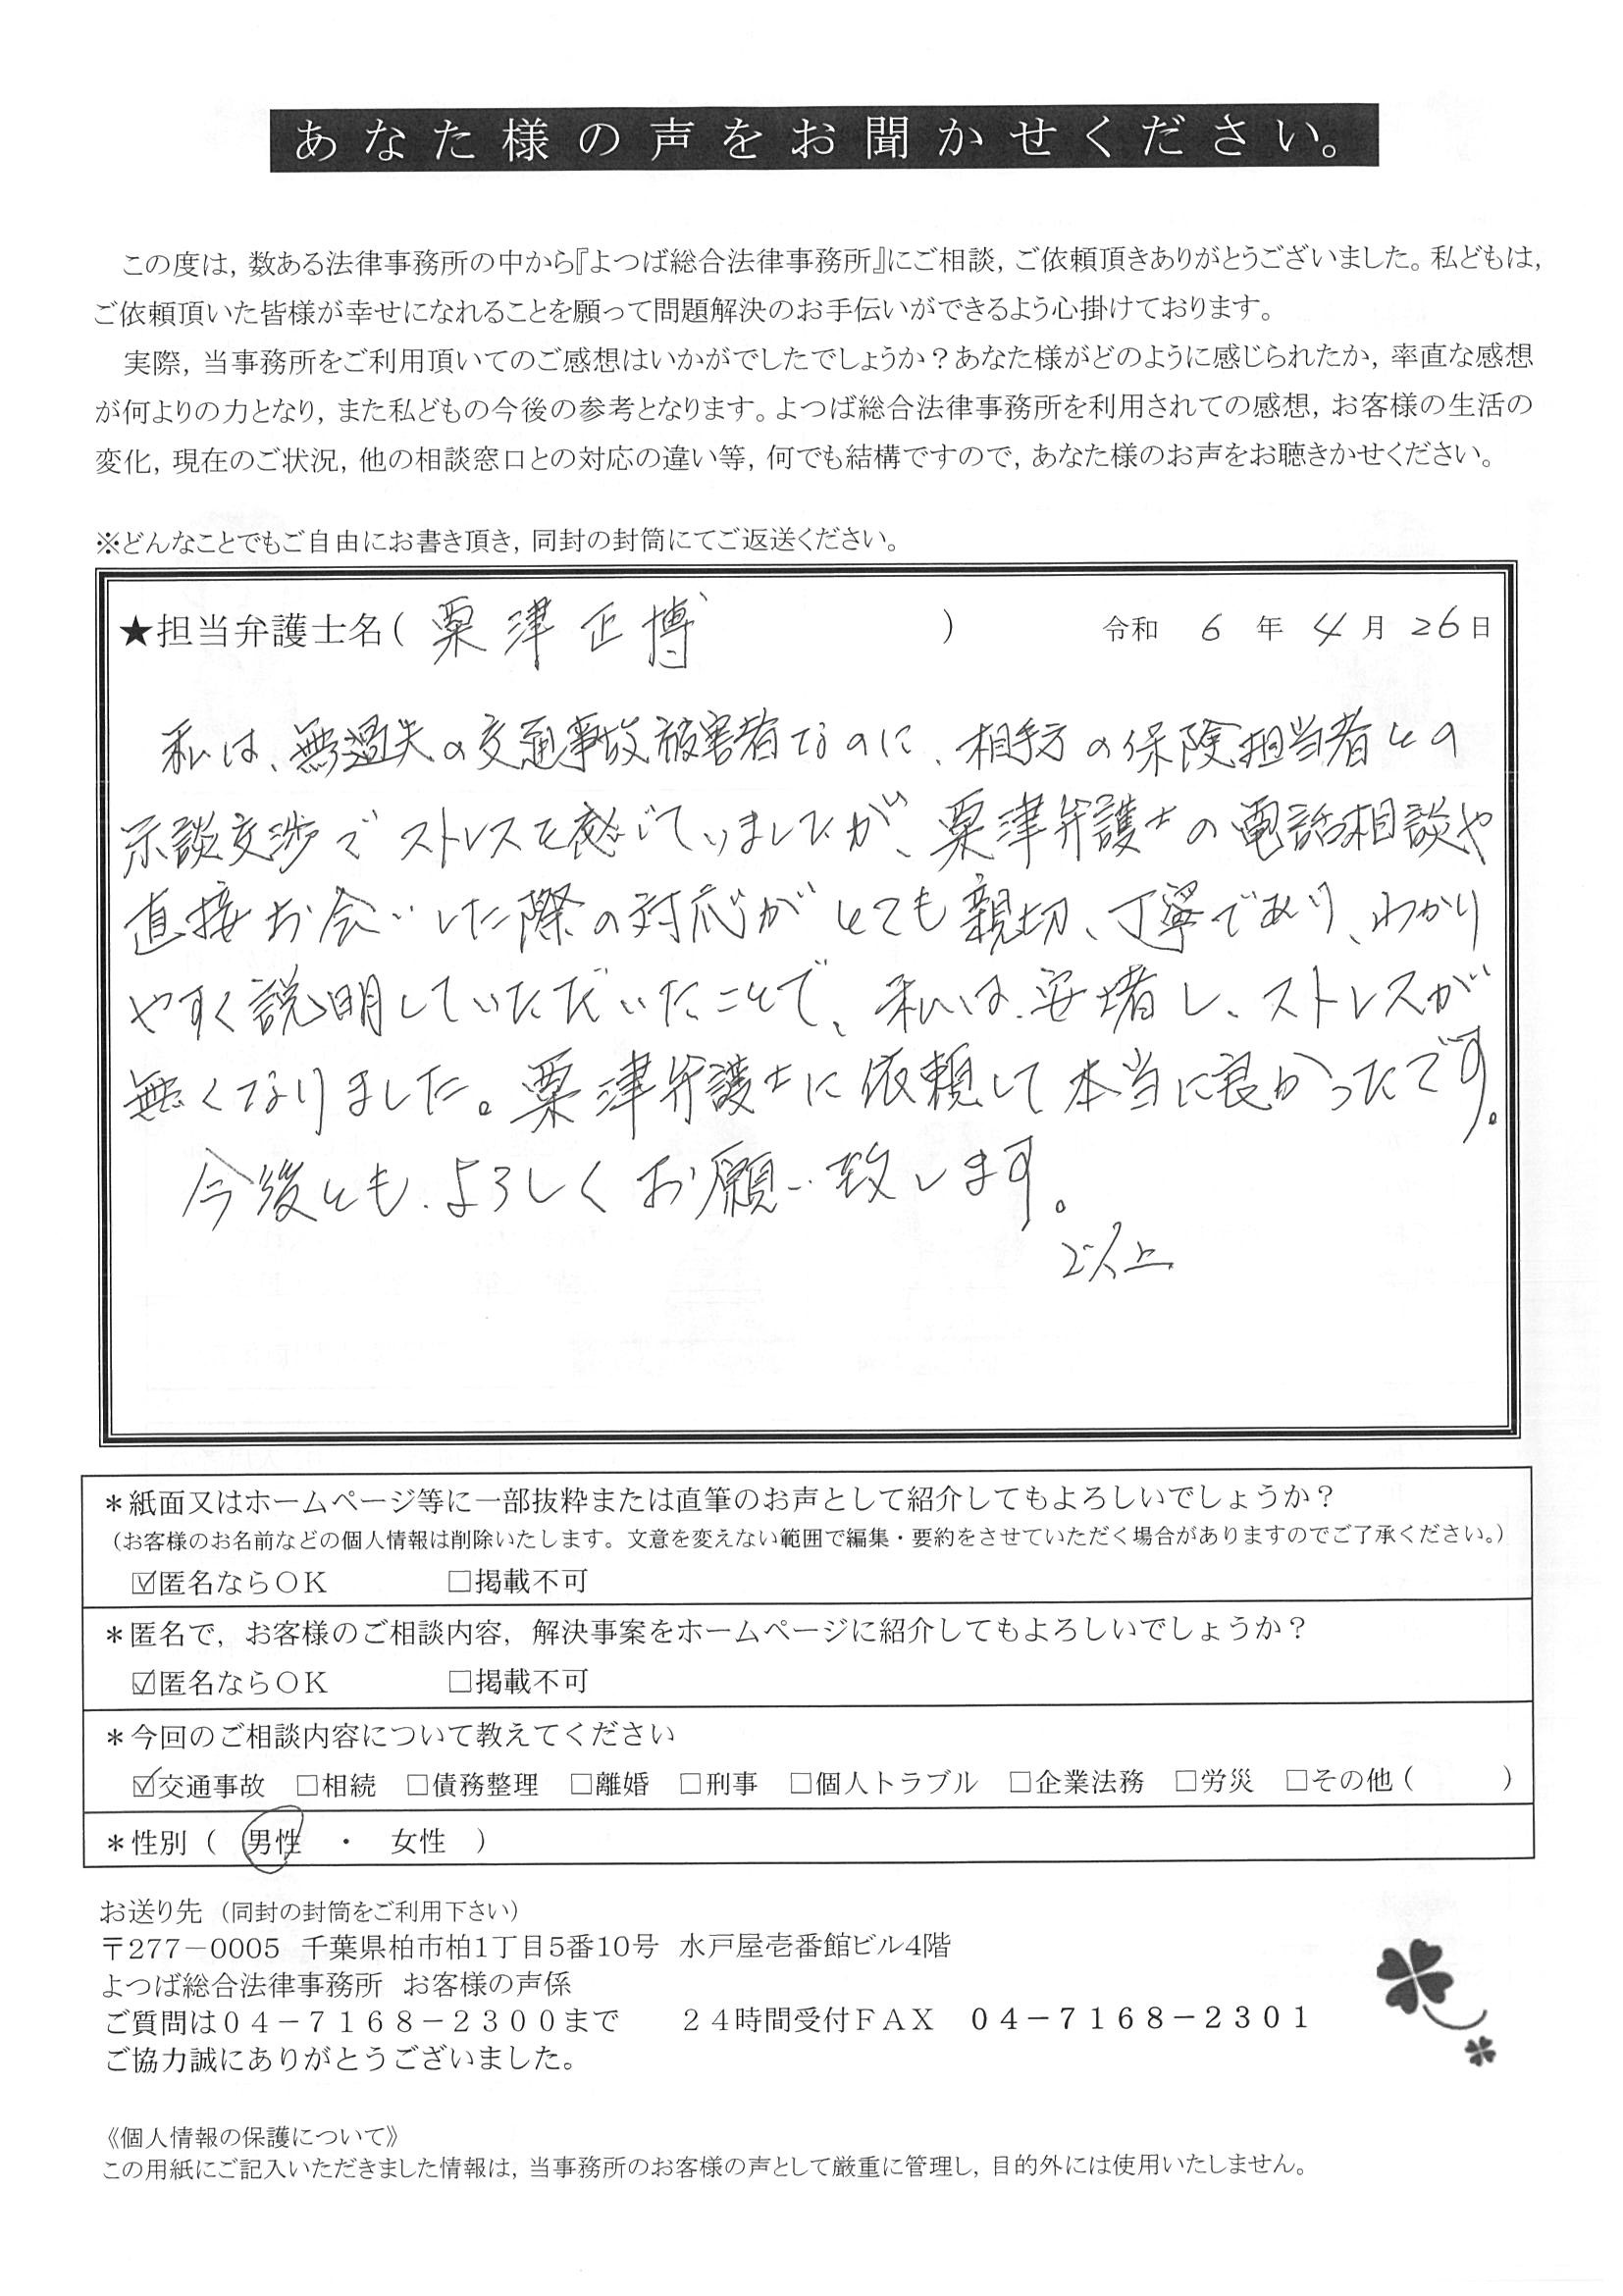 あなた様の声をお聞かせください。
この度は，数ある法律事務所の中から『よつば総合法律事務所』にご相談，ご依頼頂きありがとうございました。私どもは，
ご依頼頂いた皆様が幸せになれることを願って問題解決のお手伝いができるよう心掛けております。
実際，当事務所をご利用頂いてのご感想はいかがでしたでしょうか？あなた様がどのように感じられたか，率直な感想
が何よりの力となり，また私どもの今後の参考となります。よつば総合法律事務所を利用されての感想，お客様の生活の
変化，現在のご状況，他の相談窓口との対応の違い等，何でも結構ですので，あなた様のお声をお聴きかせください。
※どんなことでもご自由にお書き頂き，同封の封筒にてご返送ください。
★担当弁護士名（ 粟津正博 ） 令和 6 年 4 月 26 日
私は、無過失の交通事故被害者なのに、相手方の保険担当者との
示談交渉でストレスを感じていましたが、粟津弁護士の電話相談や
直接お会いした際の対応がとても親切、丁寧であり、わかり
やすく説明していただいたことで、私は、安堵し、ストレスが
無くなりました。粟津弁護士に依頼して本当に良かったです。
今後とも、よろしくお願い致します。
以上
＊紙面又はホームページ等に一部抜粋または直筆のお声として紹介してもよろしいでしょうか？
（お客様のお名前などの個人情報は削除いたします。文意を変えない範囲で編集・要約をさせていただく場合がありますのでご了承ください。）
☑匿名ならＯＫ □掲載不可
＊匿名で，お客様のご相談内容，解決事案をホームページに紹介してもよろしいでしょうか？
☑匿名ならＯＫ □掲載不可
＊今回のご相談内容について教えてください
☑交通事故 □相続 □債務整理 □離婚 □刑事 □個人トラブル □企業法務 □労災 □その他（ ）
＊性別（ 男性 ・ 女性 ）
お送り先（同封の封筒をご利用下さい）
〒277－0005 千葉県柏市柏1丁目5番10号 水戸屋壱番館ビル4階
よつば総合法律事務所 お客様の声係
ご質問は０４－７１６８－２３００まで ２４時間受付ＦＡＸ ０４－７１６８－２３０１
ご協力誠にありがとうございました。
《個人情報の保護について》
この用紙にご記入いただきました情報は，当事務所のお客様の声として厳重に管理し，目的外には使用いたしません。